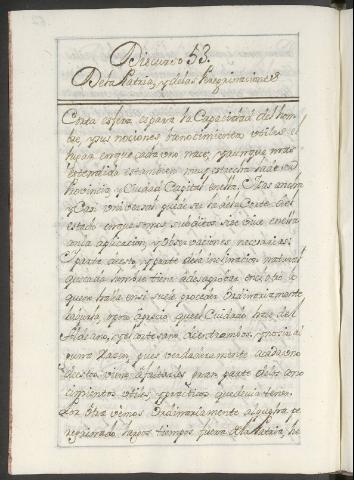 Discurso 53.
De la Patria, y de las Peregrinaciones
Corta esfera es para la Capacidad del hom
bre, y sus nociones, conocimientos utiles el
lugar en que cada uno nace, y aunque mas
extendida es tambien muy estrecha la de su
Provincia, y Ciudad Capital en ella. Mas ancha
y casi universal puede ser la de la Corte del
estado en que somos subditos si se vive en ella
con la aplicacion, y observaciones necesarias.
parte de esto, y parte de la inclinacion natural
que cada hombre tiene a desaprobar en el otro lo
que no halla en si suele proceder ordinariamente
poco aprecio que el Ciudadano hace del
Aldeano, y el cortesano de entrambos, y no sin al
guna razon, pues verdaderamente a cada uno
de estos viene a faltarles gran parte de los cono
cimientos utiles, y practicos que devia tener.
Por otra vemos ordinariamente al que ha pe
regrinado largos tiempos fuera de la Patria, ha